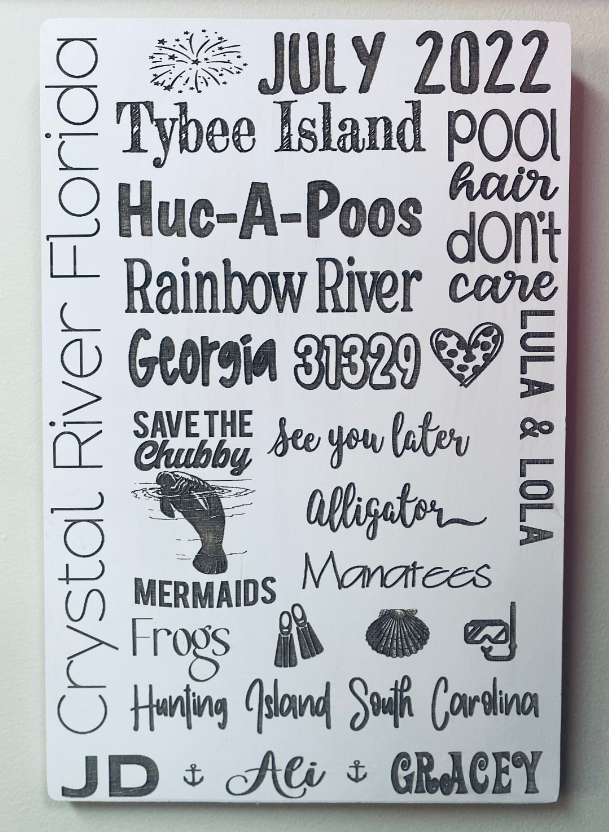 Crystal River Florida
JULY 2022
Tybee Island
POOL
hair
don't
care
Huc-A-Poos
Rainbow River
Georgia 31329
LULA & LOLA
SAVE THE
Chubby
MERMAIDS
see you later
Alligator
Manatees
Frogs
Hunting Island South Carolina
JD Ali GRACEY